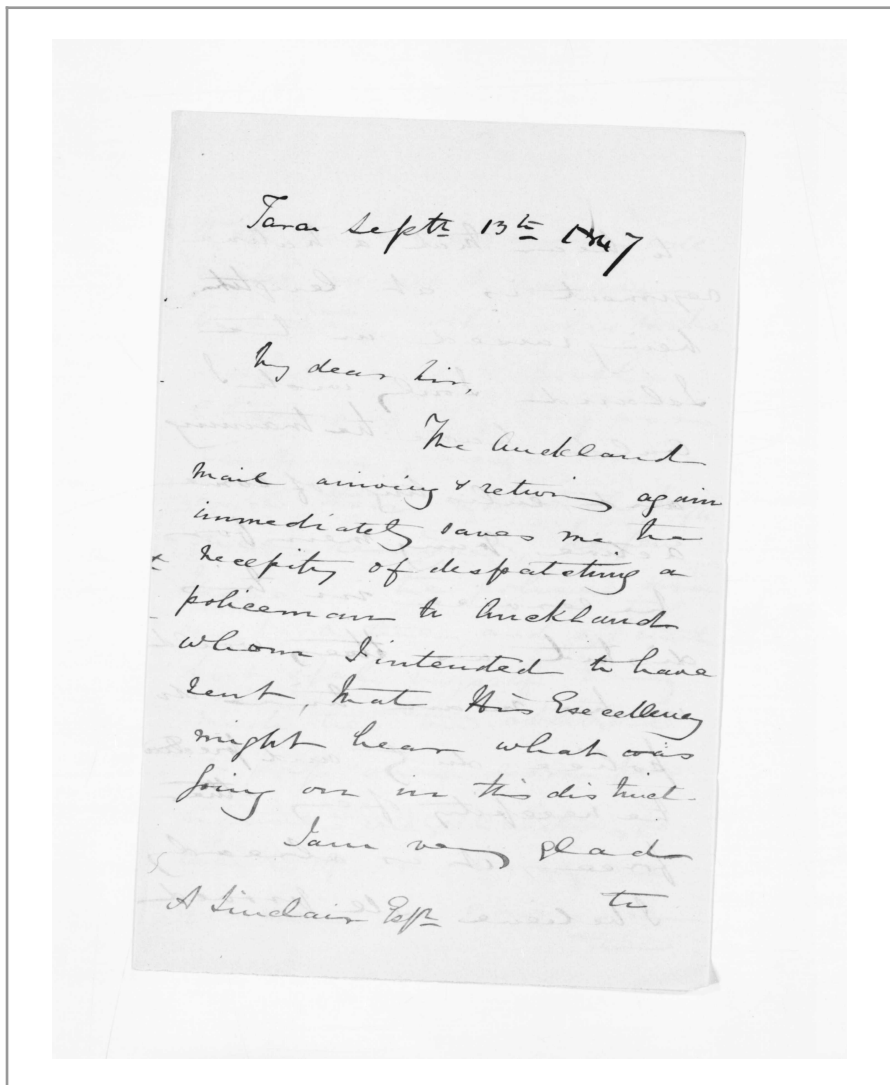 Tara Septr 13th 1847
My dear Sir,
The Auckland
mail arriving & returng again
immediately saves me the
necessity of despatching a
policeman to Auckland
whom I intended to have
sent, that His Excellency
might hear what was
going on in this district.
I am very glad
to
A Sinclair Esqr